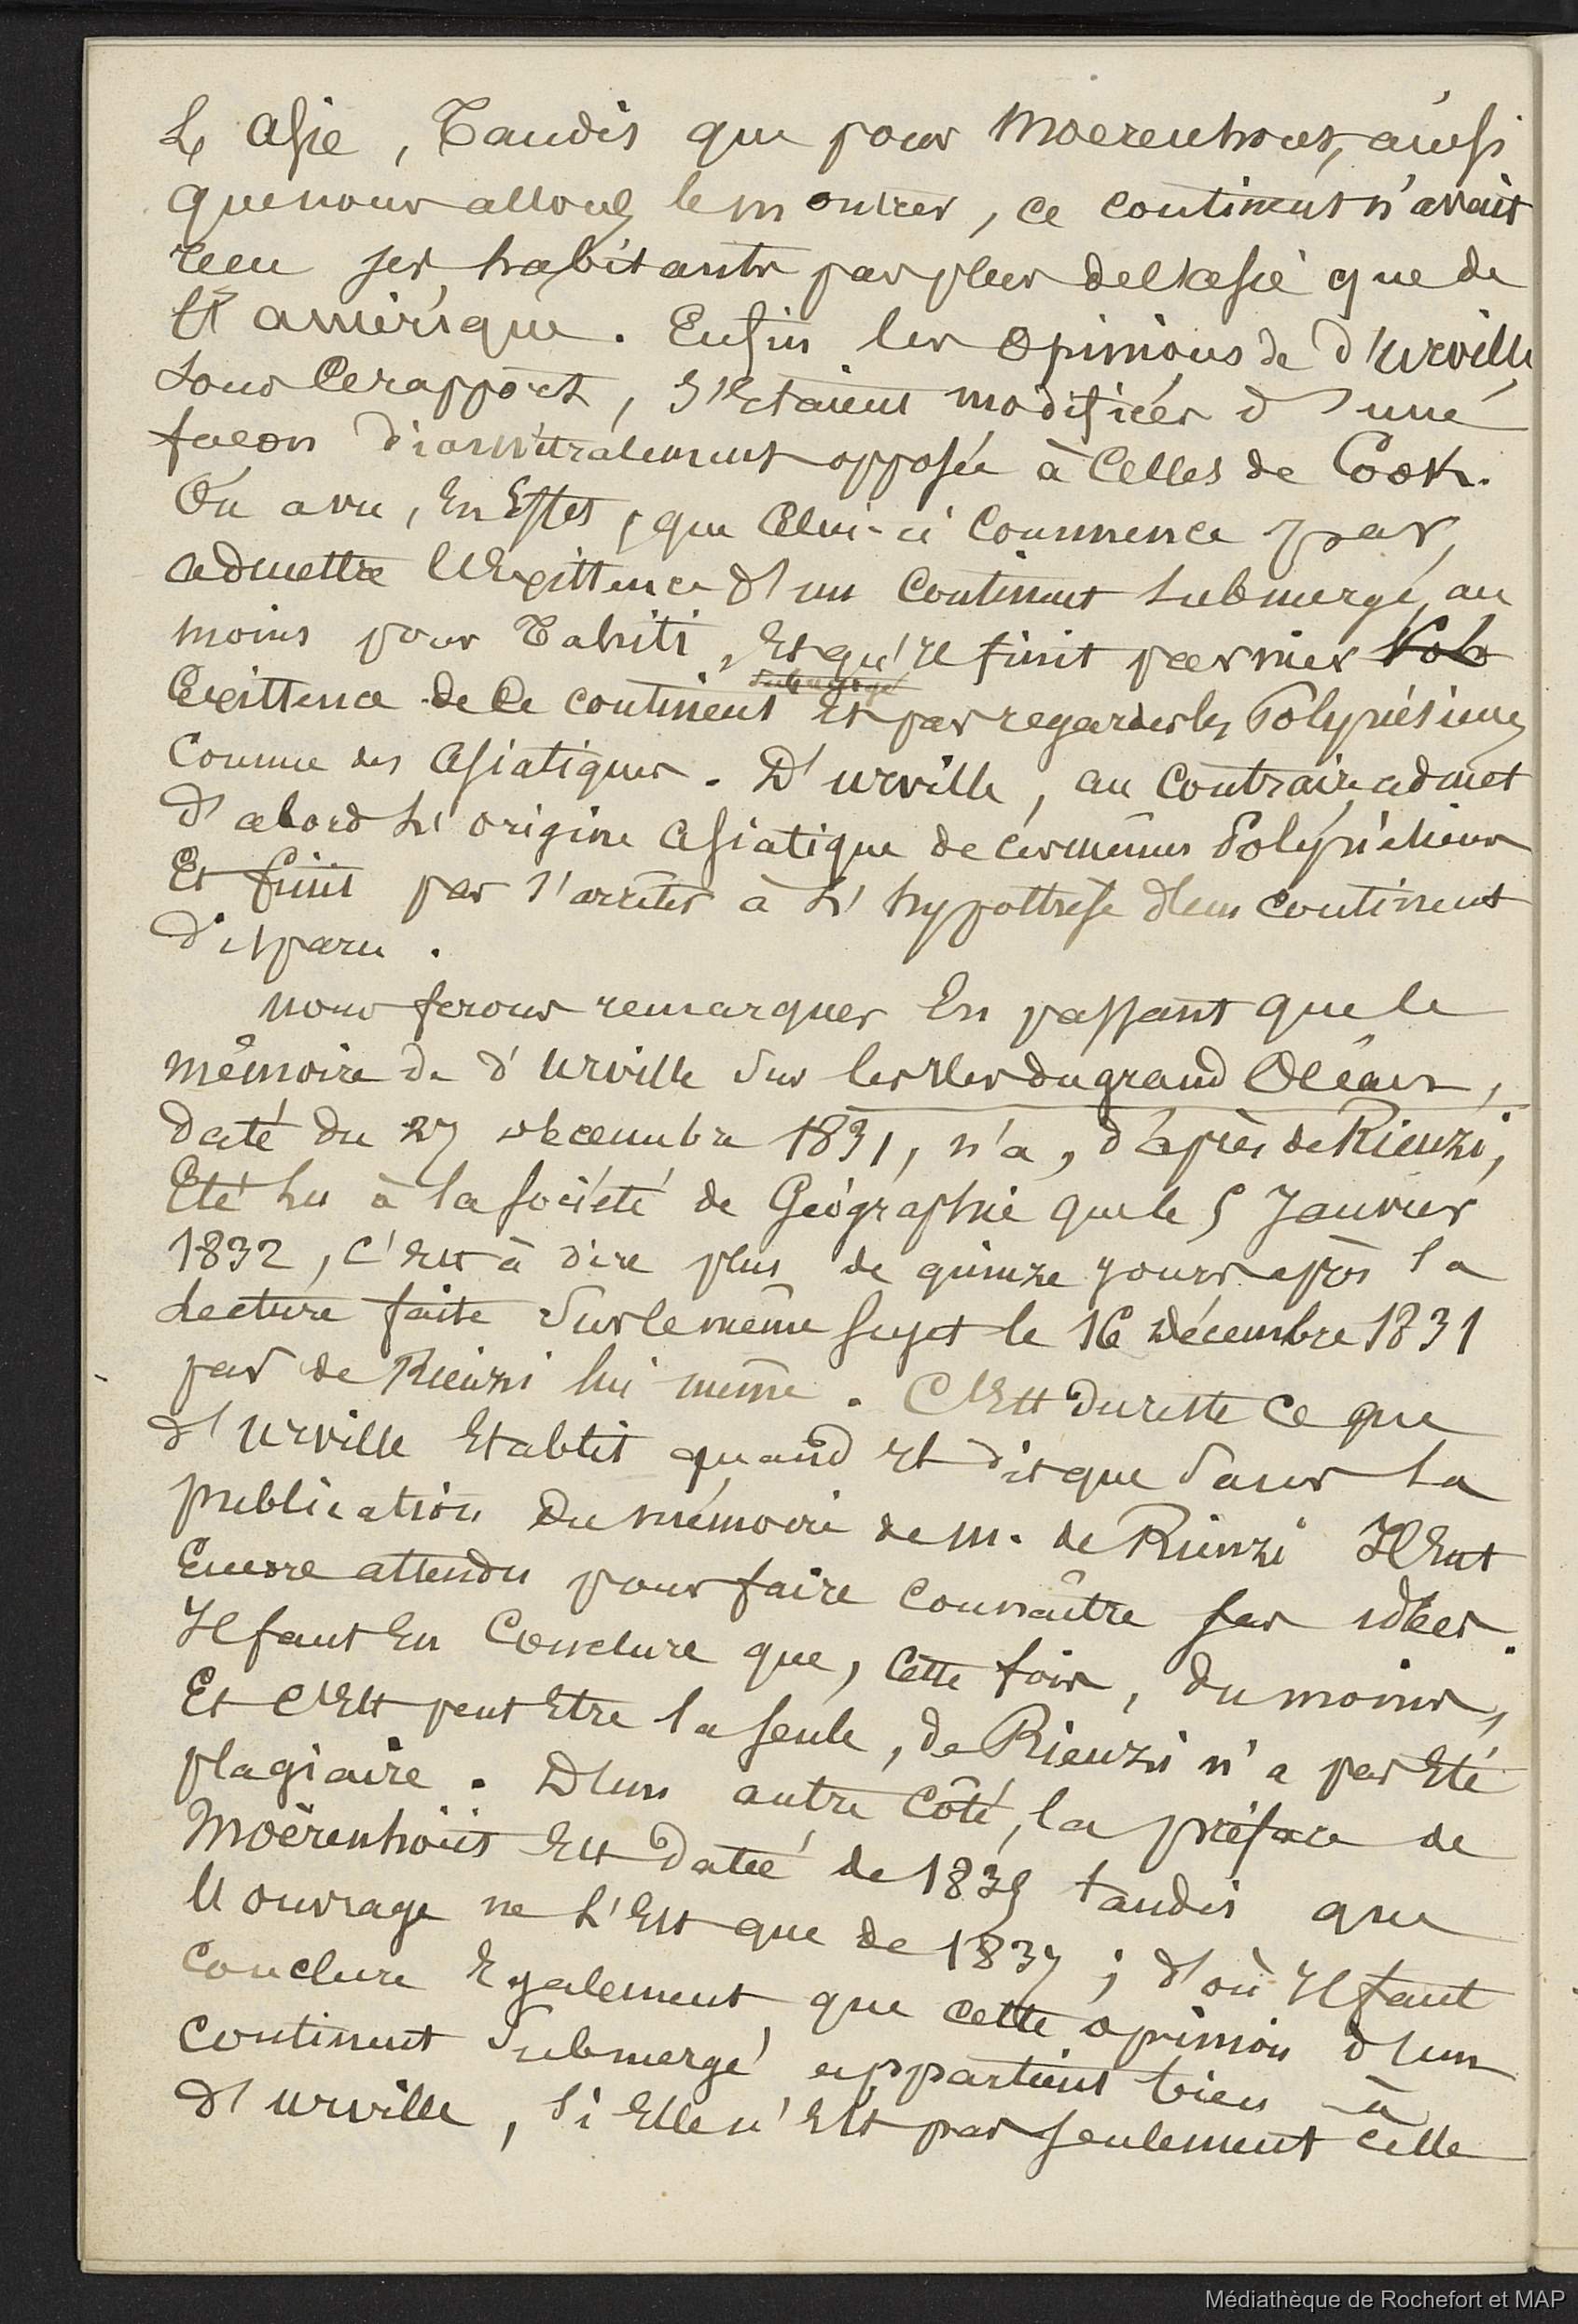 L'Asie, Tandis que pour Moerenhout, ainsi
que nous allons le montrer, ce continent n'avait
recu ses habitants pas plus de l'Asie que de
l'amérique. Enfin les opinions de d'Urville,
sous ce rapport, s'Etaient modifiées d'une
façon diamétralement opposée à Celles de Cook.
On a vu, En Effet, que Celui-ci Commence par
admettre l'Existence d'un Continent submergé, au
moins pour Tahiti, Et qu'il finit par nier
submergé
Existence de Ce continent Et par regarder les Polynésiens
Comme des Asiatiques. D'Urville, au Contraire, admet
d'abord l'origine Asiatique de ces mêmes Polynésiens
Et finit par s'arrêter à l'hypothèse d'un Continent
disparu.
nous ferons remarquer En passant que le
mémoire de d'Urville sur les Iles du grand Océan,
daté du 27 décembre 1831, n'a, d'après de Rienzi,
Eté lu à la société de Géographie que le 5 Janvier
1832, c'Est à dire plus de quinze jours après la
Lecture faite sur le même sujet le 16 décembre 1831
par de Rienzi lui même. C'Est du reste ce que
d'Urville Etablit quand Il dit que sans la
publication du mémoire de M. de Rienzi Il Eut
Encore attendu pour faire connaître ses idées.
Il faut En Conclure que, Cette fois, du moins,
Et C'Est peut Etre la seule, de Rienzi n'a pas Eté
plagiaire. D'un autre Côté, la préface de
Moërenhout Est datée de 1835 tandis que
l'ouvrage ne l'Est que de 1837; d'où Il faut
Conclure Egalement que cette opinion d'un
continent submergé appartient bien à
d'Urville, si Elle n'Est pas seulement celle
Médiathèque de Rochefort et MAP